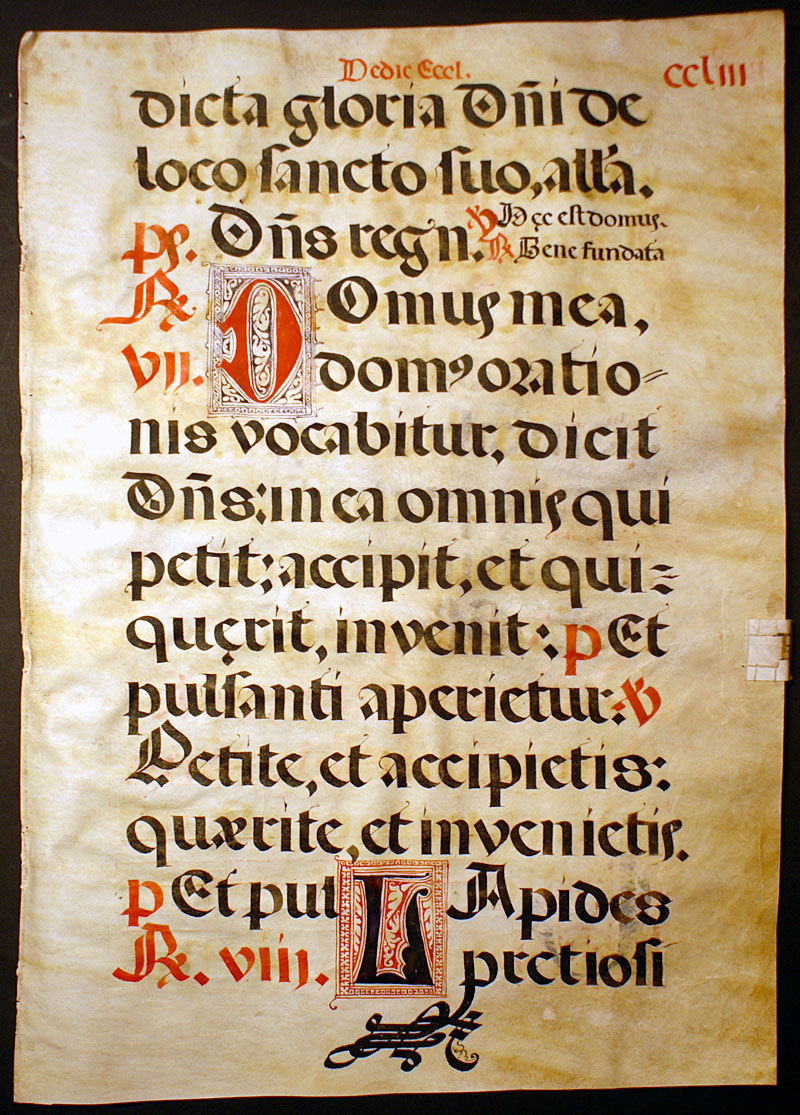 Dedic Eccl. ccliii
dicta gloria Dñi de
loco sancto suo, alľa.
ps. Dñs regn. ℣ Hęc est domus.
℟ Bene fundata
℟ DOmus mea,
vii. domꝰ oratio-
nis vocabitur, dicit
Dñs: in ea omnis qui
petit; accipit, et qui-
quęrit, invenit: p Et
pulsanti aperietur: ℣
Petite, et accipietis:
quærite, et invenietis.
p Et pul LApides
℟. viij. pretiosi